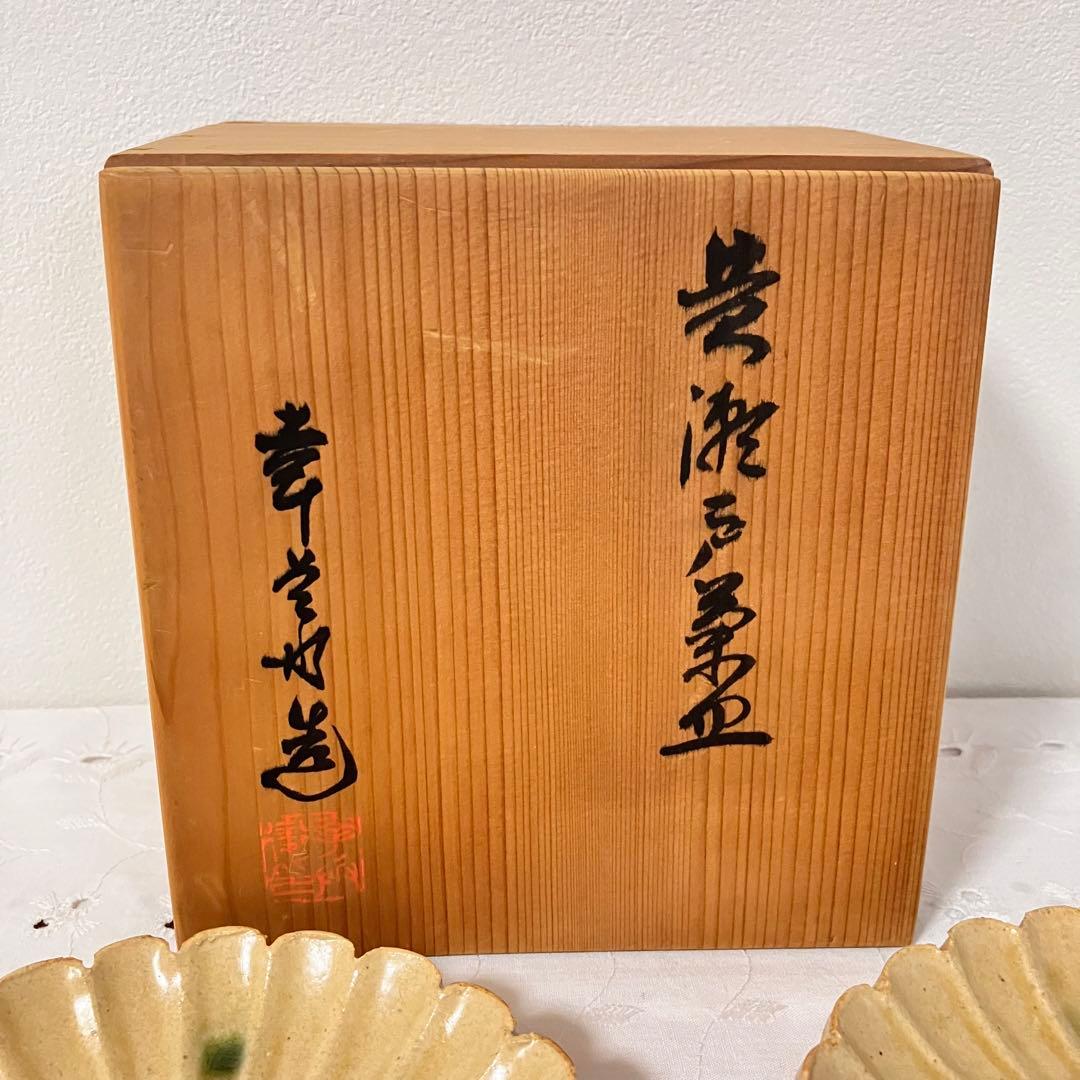 黄瀬戸菊皿
幸兵衛造